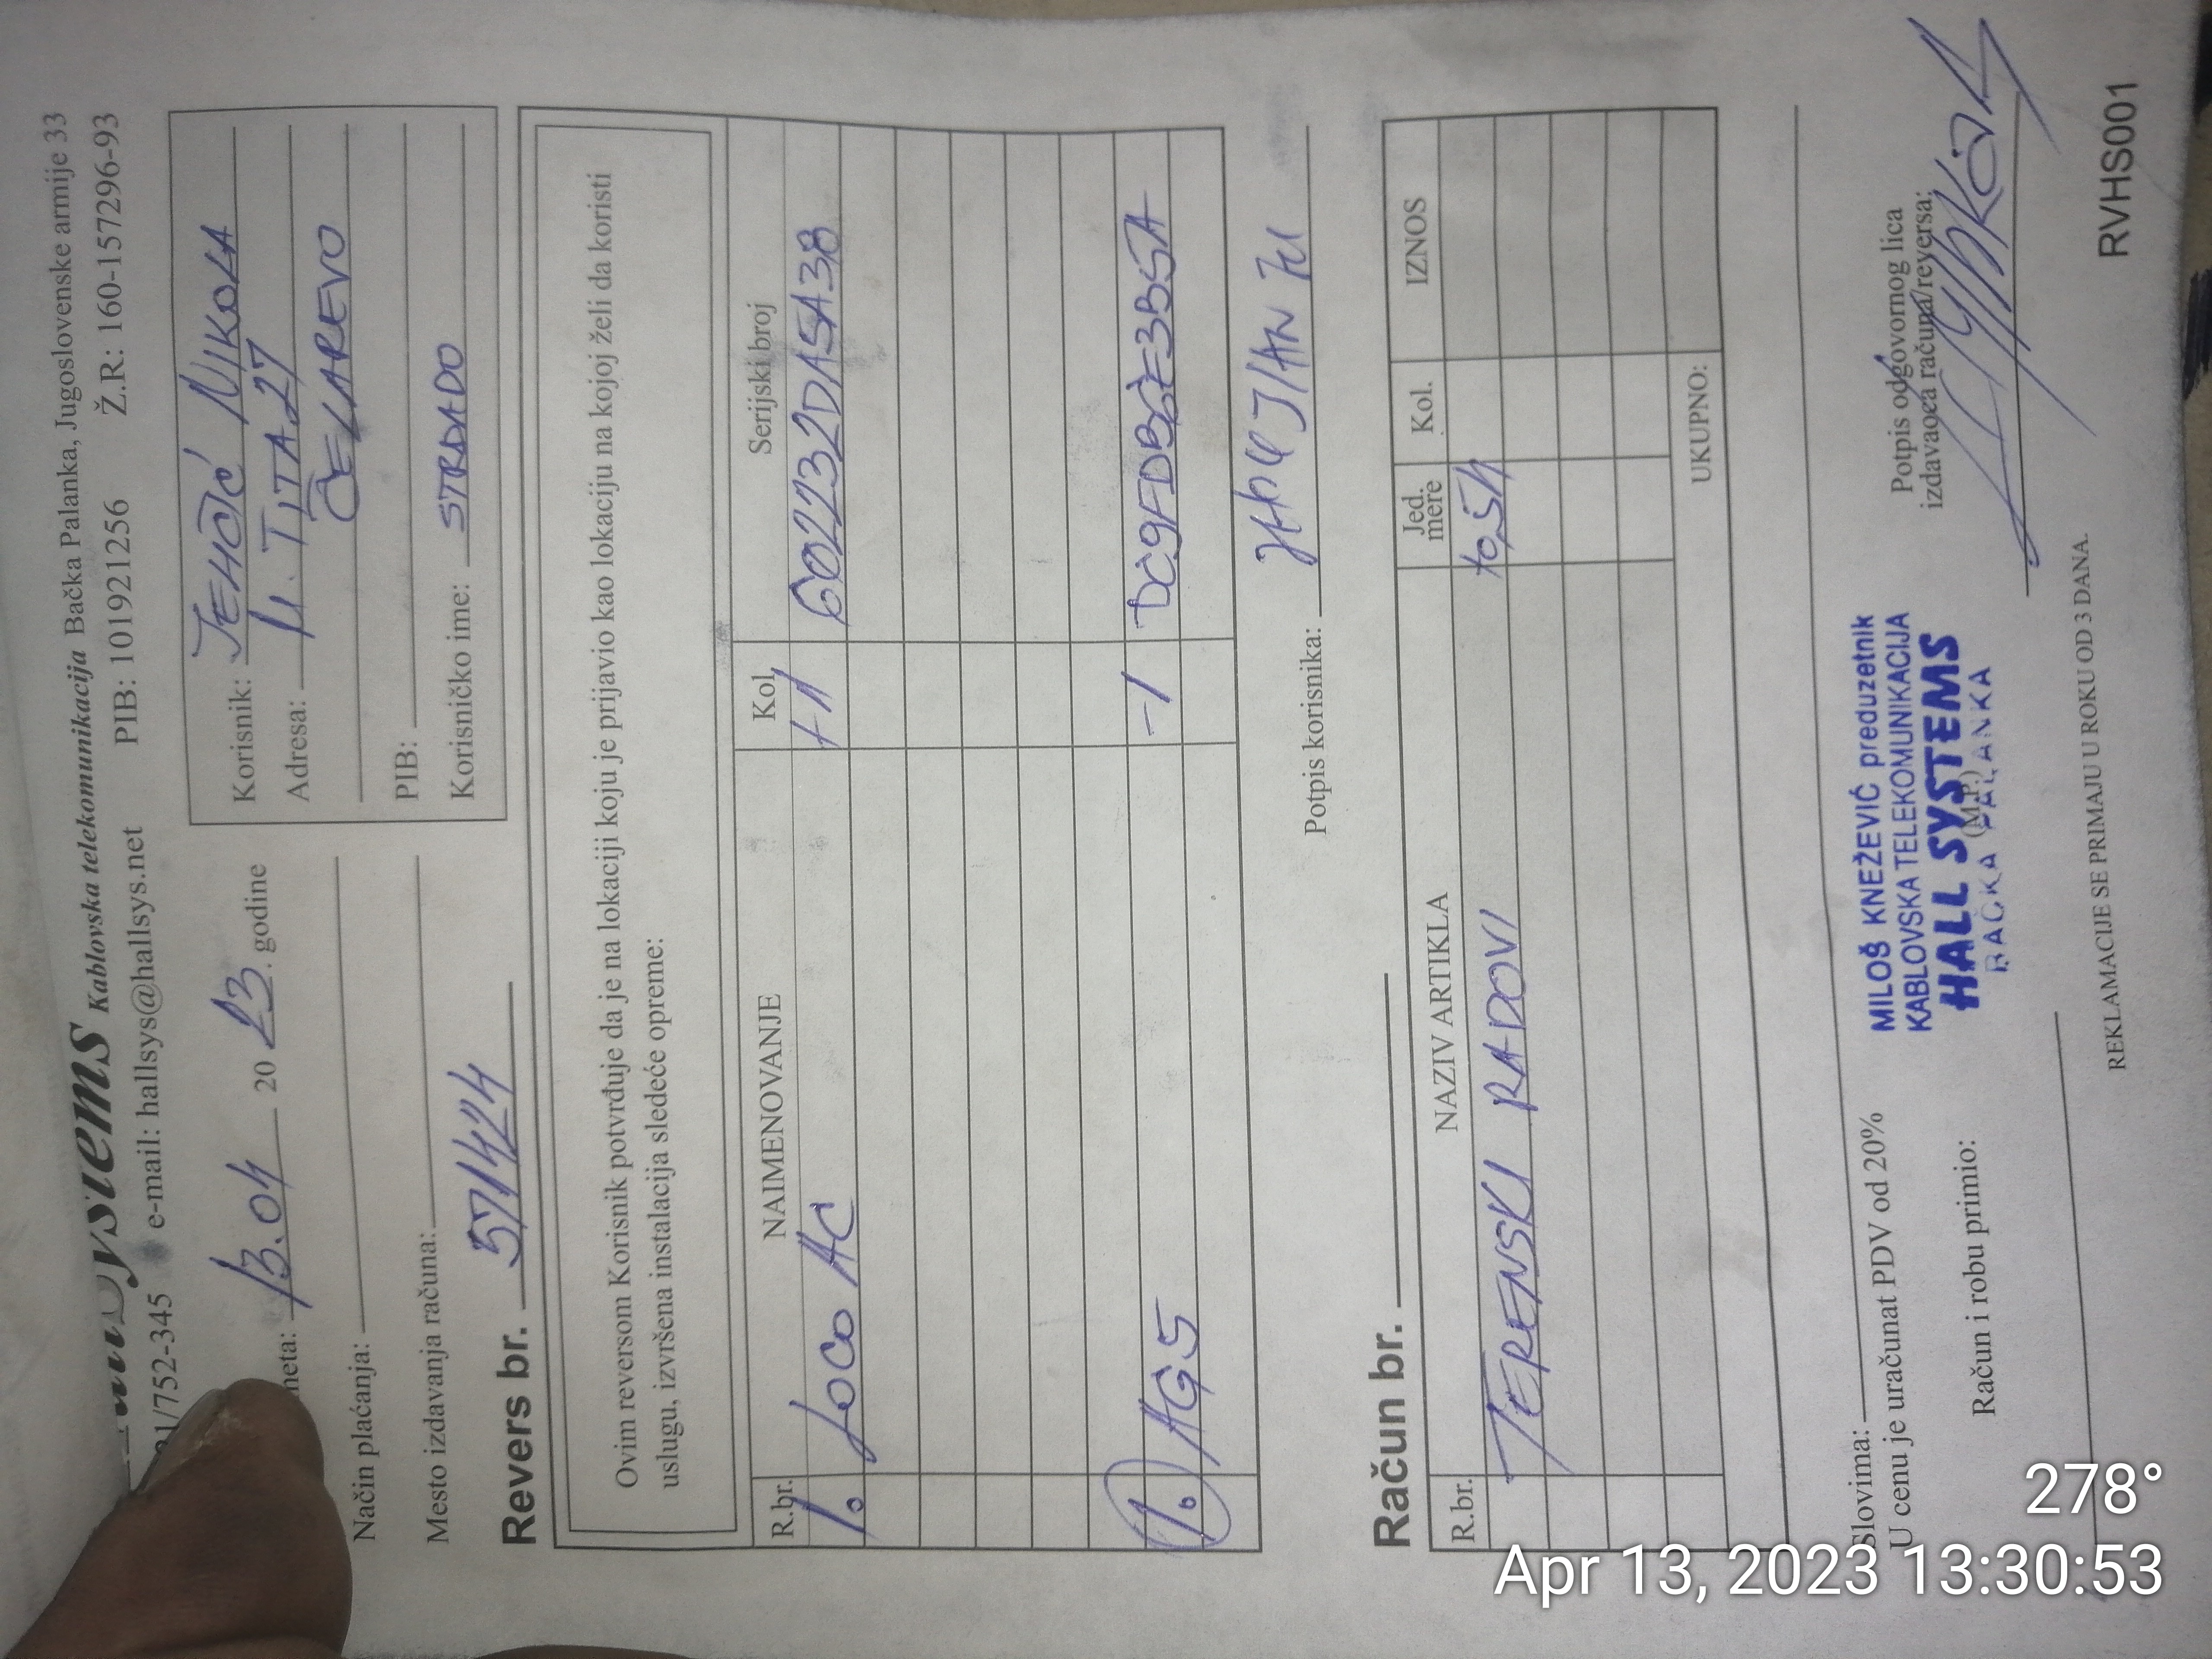 Kablovska telekomunikacija Bačka Palanka, Jugoslovenske armije 33
/752-345 e-mail: hallsys@hallsys.net PIB: 101921256 Ž.R: 160-157296-93
13.04 20 23. godine
Način plaćanja:
Mesto izdavanja računa:
Korisnik: NIKOLA
Adresa: M. TITA 27
ČELAREVO
PIB:
Korisničko ime: STRADADO
Revers br. 571424
Ovim reversom Korisnik potvrđuje da je na lokaciji koju je prijavio kao lokaciju na kojoj želi da koristi
uslugu, izvršena instalacija sledeće opreme:
R.br. NAIMENOVANJE Kol. Serijski broj
1. LOCO AC +1 602232DA5A38
1. AG5 -1
Potpis korisnika:
Račun br.
R.br. NAZIV ARTIKLA Jed. mere Kol. IZNOS
TERENSKI RADOVI
UKUPNO:
Slovima:
U cenu je uračunat PDV od 20%
Račun i robu primio:
MILOŠ KNEŽEVIĆ preduzetnik
KABLOVSKA TELEKOMUNIKACIJA
HALL SYSTEMS
(M.P.)
BAČKA PALANKA
Potpis odgovornog lica
izdavaoca računa/reversa:
REKLAMACIJE SE PRIMAJU U ROKU OD 3 DANA.
RVHS001
278°
Apr 13, 2023 13:30:53